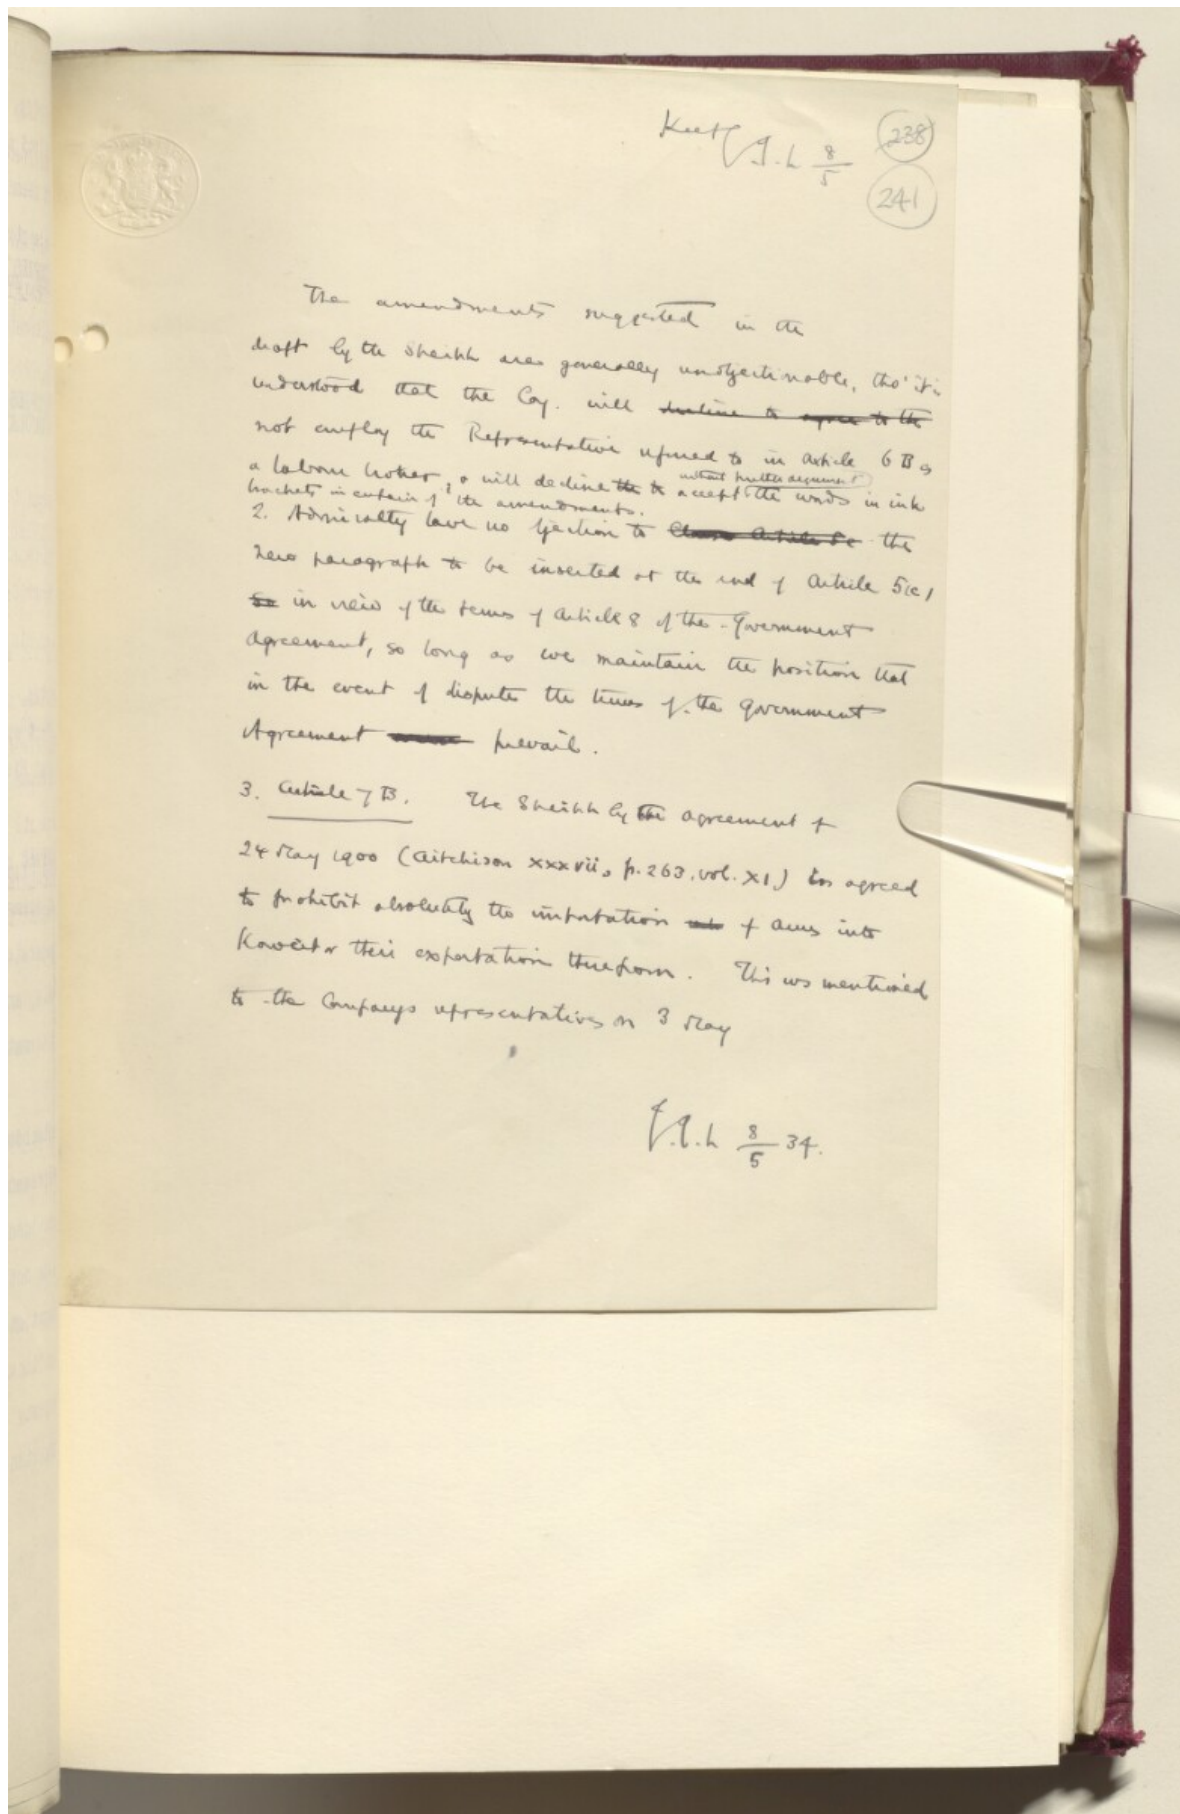 238
J.L 8/5
241
The amendments suggested in the
draft by the Sheikh are generally unobjectionable, tho' it is
understood that the Coy. will decline to agree to the
not employ the Representative referred to in Article 6 B as
a labour broker, & will decline the to accept the words in ink
without further argument
brackets in certain of the amendments.
2. Admiralty have no objection to the
new paragraph to be inserted at the end of Article 5(c)
in view of the terms of Article 8 of the Government
Agreement, so long as we maintain the position that
in the event of dispute the terms of the Government
Agreement prevail.
3. Article 7 B. The Sheikh by the agreement of
24 May 1900 (Aitchison xxxvii, p. 263, vol. XI) has agreed
to prohibit absolutely the importation of arms into
Koweit or their exportation therefrom. This was mentioned
to the Company's representatives on 3 May
8/5 34.